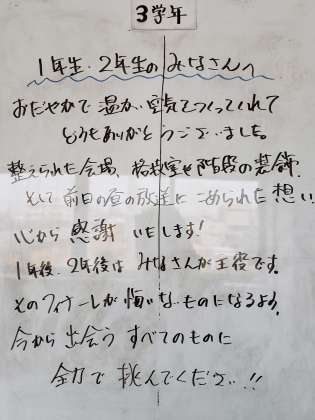 3学年
1年生・2年生のみなさんへ
おだやかで温かい空気でつくってくれて
どうもありがとうございました。
整えられた会場、各教室や階段の装飾、
そして前日の昼の放送にこめられた想い
心から感謝いたします!
1年後、2年後はみなさんが主役です。
そのフィナーレが悔いないものになるよう、
今から出会うすべてのものに
全力で挑んでください!!